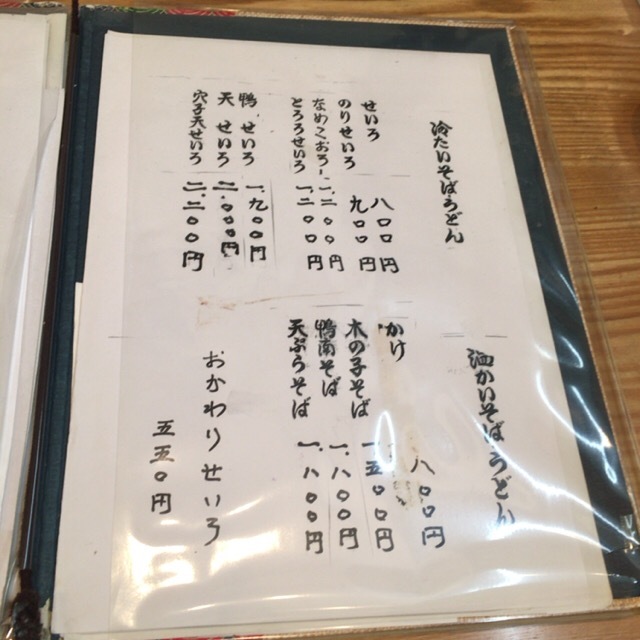 冷たいそばうどん
せいろ 八〇〇円
のりせいろ 九〇〇円
なめこおろし 一、二〇〇円
とろろせいろ 一、二〇〇円
鴨せいろ 一、九〇〇円
天せいろ 二、〇〇〇円
穴子天せいろ 二、二〇〇円
温かいそばうどん
かけ 八〇〇円
木の子そば 一、五〇〇円
鴨南そば 一、八〇〇円
天ぷらそば 一、八〇〇円
おかわりせいろ
五五〇円